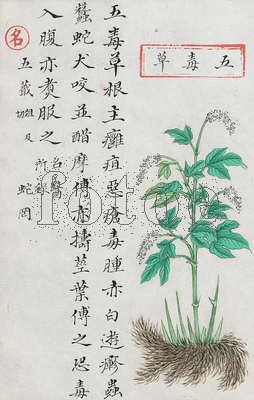 五毒草
五毒草根主癰疽惡瘡毒腫亦白遊瘮蟲
蠶蛇犬咬並醋摩傅亦擣莖葉傅之恐毒
入腹亦煑服之 名醫所錄
名 五蕺 祖及切 蛇罔
fotoe